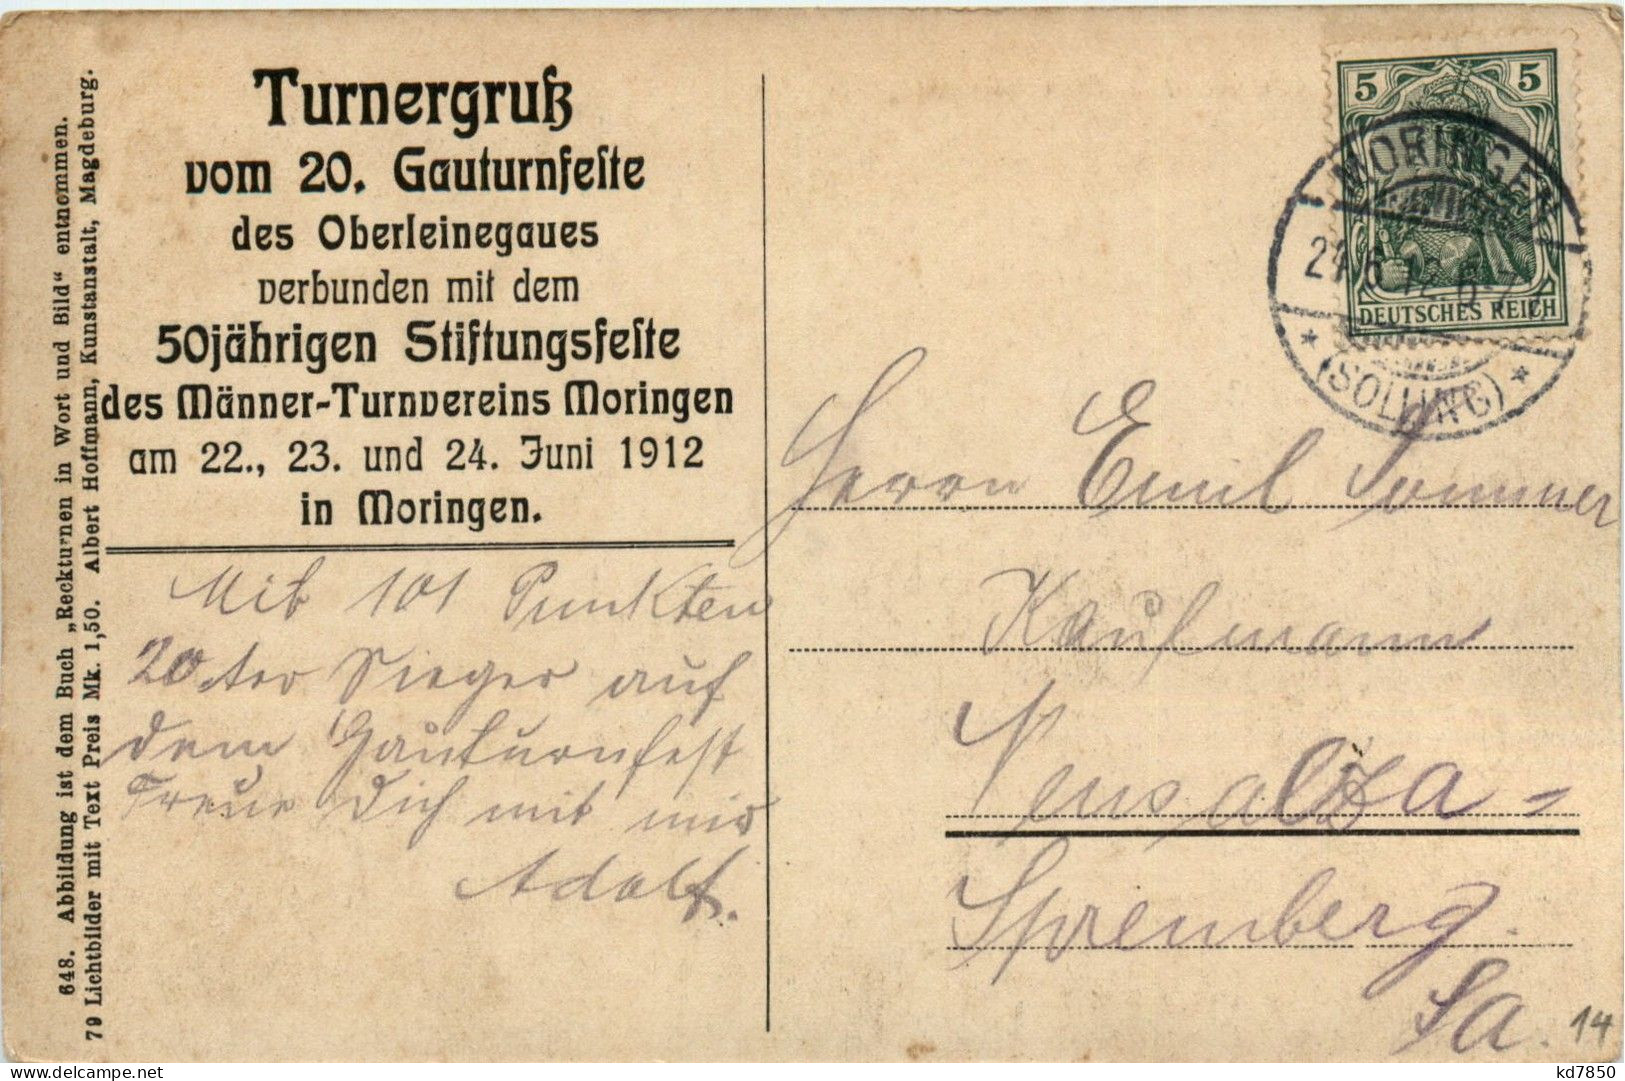 Turnergruß
vom 20. Gauturnfeſte
des Oberleinegaues
verbunden mit dem
50jährigen Stiftungsfeſte
des Männer-Turnvereins Moringen
am 22., 23. und 24. Juni 1912
in Moringen.
Mit 101 Punkten
20.ter Sieger auf
dem Gauturnfest
Freue Dich mit mir
Adolf.
648. Abbildung ist dem Buch „Reckturnen in Wort und Bild“ entnommen.
79 Lichtbilder mit Text Preis Mk. 1,50. Albert Hoffmann, Kunstanstalt, Magdeburg.
5 5
DEUTSCHES REICH
MORINGEN
24.6.12.6-7
* (SOLLING) *
Herrn Emil Sommer
Kaufmann
Neusalza-
Spremberg.
Sa.
14
kd7850